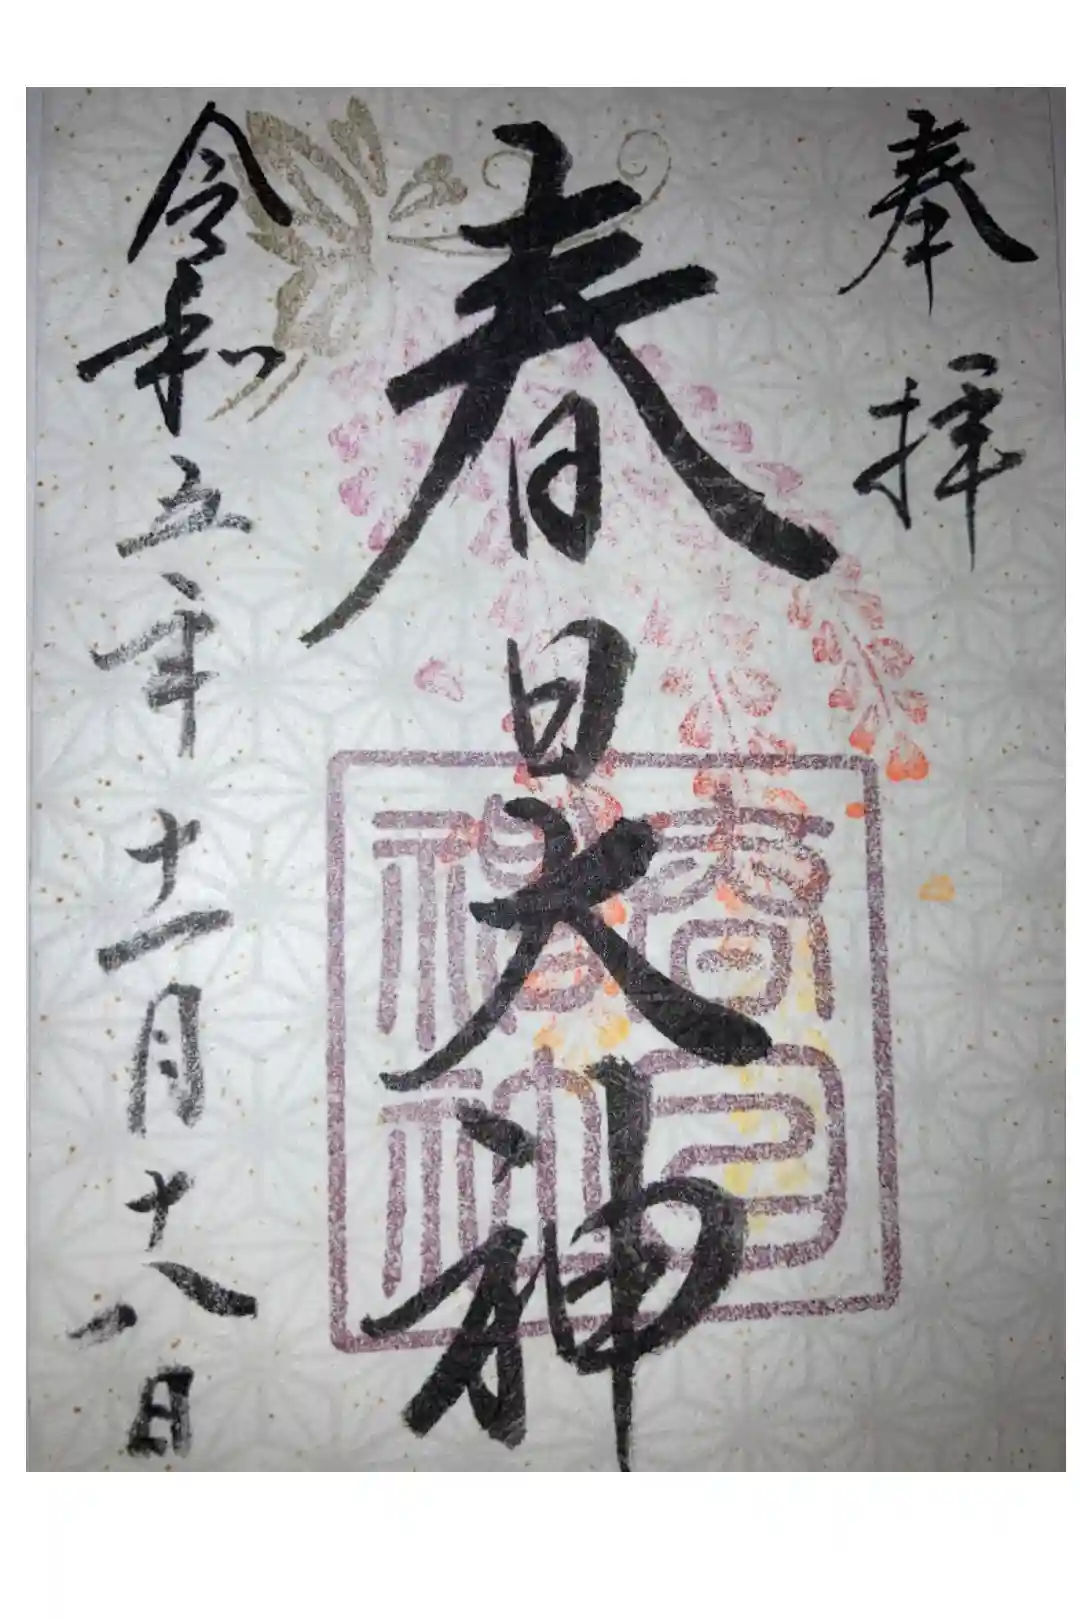 奉拝
春日大神
春日神社
令和五年十一月十八日